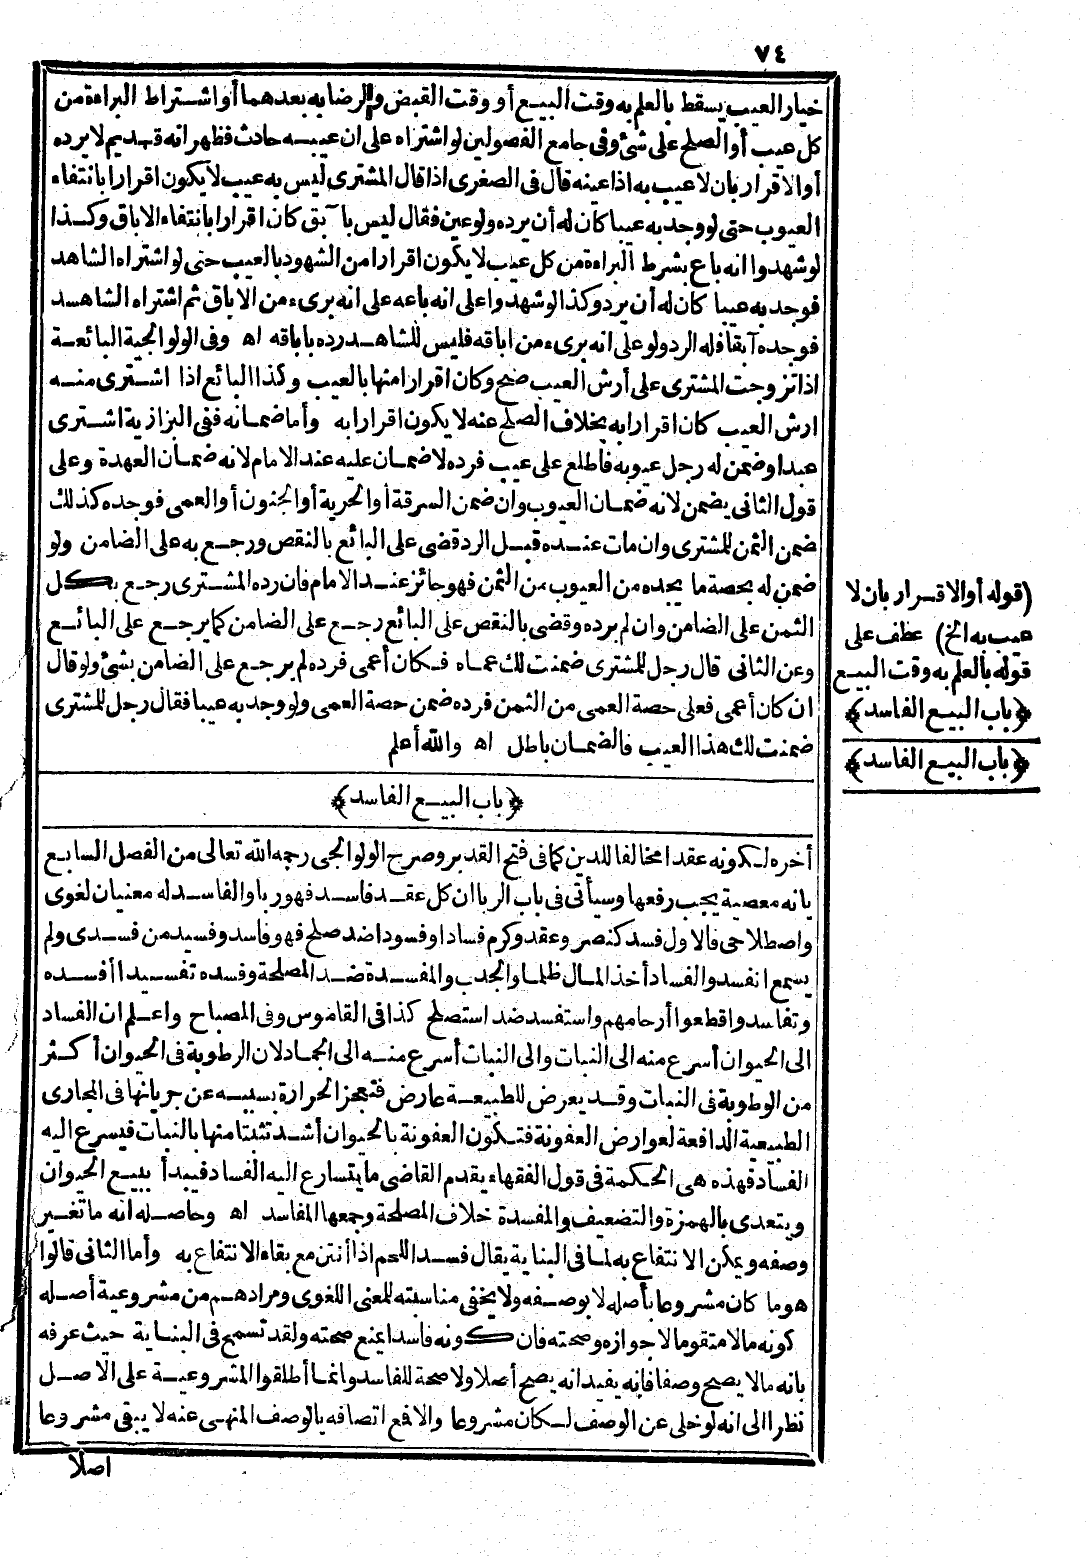 ٧٤
خيار العيب يسقط بالعلم به وقت البيع أو وقت القبض والرضا به بعدهما أو اشتراط البراءة من
كل عيب أو الصلح على شئ وفى جامع الفصولين لو اشتراه على ان عيبه حادث فظهر انه قديم لا يرده
أو الاقرار بان لا عيب به اذا عينه قال فى الصغرى اذا قال المشترى ليس به عيب لا يكون اقرارا بانتفاء
العيوب حتى لو وجد به عيبا كان له أن يرده ولو عين فقال ليس بآبق كان اقرارا بانتفاء الاباق وكذا
لو شهدوا انه باع بشرط البراءة من كل عيب لا يكون اقرارا من الشهود بالعيب حتى لو اشتراه الشاهد
فوجد به عيبا كان له أن يرد وكذا لو شهدوا على انه باعه على انه برىء من الاباق ثم اشتراه الشاهد
فوجده آبقا فله الرد ولو على انه برىء من اباقه فليس للشاهد رده باباقه اه وفى الولوالجية البائعة
اذا تزوجت المشترى على أرش العيب صح وكان اقرارا منها بالعيب وكذا البائع اذا اشترى منه
ارش العيب كان اقرارا به بخلاف الصلح عنه لا يكون اقرارا به وأما ضمانه ففى البزازية اشترى
عبدا وضمن له رجل عيوبه فاطلع على عيب فرده لا ضمان عليه عند الامام لانه ضمان العهدة وعلى
قول الثانى يضمن لانه ضمان العيوب وان ضمن السرقة أو الحرية أو الجنون أو العمى فوجده كذلك
ضمن الثمن للمشترى وان مات عنده قبل الرد قضى على البائع بالنقص ورجع به على الضامن ولو
ضمن له بحصة ما يجده من العيوب من الثمن فهو جائز عند الامام فان رده المشترى رجع بكل
الثمن على الضامن وان لم يرده وقضى بالنقص على البائع رجع على الضامن كما يرجع على البائع
وعن الثانى قال رجل للمشترى ضمنت لك عماه فكان أعمى فرده لم يرجع على الضامن بشئ ولو قال
ان كان أعمى فعلى حصة العمى من الثمن فرده ضمن حصة العمى ولو وجد به عيبا فقال رجل للمشترى
ضمنت لك هذا العيب فالضمان باطل اه والله أعلم
﴿باب البيع الفاسد﴾
أخره لكونه عقدا مخالفا للدين كما فى فتح القدير وصرح الولوالجى رحمه الله تعالى من الفصل السابع
بانه معصية يجب رفعها وسيأتى فى باب الربا ان كل عقد فاسد فهو ربا والفاسد له معنيان لغوى
واصطلاحى فالاول فسد كنصر وعقد وكرم فسادا وفسودا ضد صلح فهو فاسد وفسيد من فسدى ولم
يسمع انفسد والفساد أخذ المال ظلما والجدب والمفسدة ضد المصلحة وفسده تفسيدا أفسده
وتفاسدوا قطعوا أرحامهم واستفسد ضد استصلح كذا فى القاموس وفى المصباح واعلم ان الفساد
الى الحيوان أسرع منه الى النبات والى النبات أسرع منه الى الجماد لان الرطوبة فى الحيوان أكثر
من الرطوبة فى النبات وقد يعرض للطبيعة عارض فتعجز الحرارة بسببه عن جريانها فى المجارى
الطبيعية الدافعة لعوارض العفونة فتكون العفونة بالحيوان أشد تشبثا منها بالنبات فيسرع اليه
الفساد فهذه هى الحكمة فى قول الفقهاء يقدم القاضى ما يتسارع اليه الفساد فيبدأ ببيع الحيوان
ويتعدى بالهمزة والتضعيف والمفسدة خلاف المصلحة وجمعها المفاسد اه وحاصله انه ما تغير
وصفه ويمكن الانتفاع به لما فى البناية يقال فسد اللحم اذا أنتن مع بقاء الانتفاع به وأما الثانى قالوا
هو ما كان مشروعا بأصله لا بوصفه ولا يخفى مناسبته للمعنى اللغوى ومرادهم من مشروعية أصله
كونه مالا متقوما لا جوازه وصحته فان كونه فاسدا يمنع صحته ولقد تسمح فى البناية حيث عرفه
بانه ما لا يصح وصفا فانه يفيد انه يصح أصلا ولا صحة للفاسد وانما أطلقوا المشروعية على الاصل
نظرا الى انه لو خلى عن الوصف لكان مشروعا والا فمع اتصافه بالوصف المنهى عنه لا يبقى مشروعا
اصلا
(قوله أو الاقرار بان لا
عيب به الخ) عطف على
قوله بالعلم به وقت البيع
﴿باب البيع الفاسد﴾
﴿باب البيع الفاسد﴾